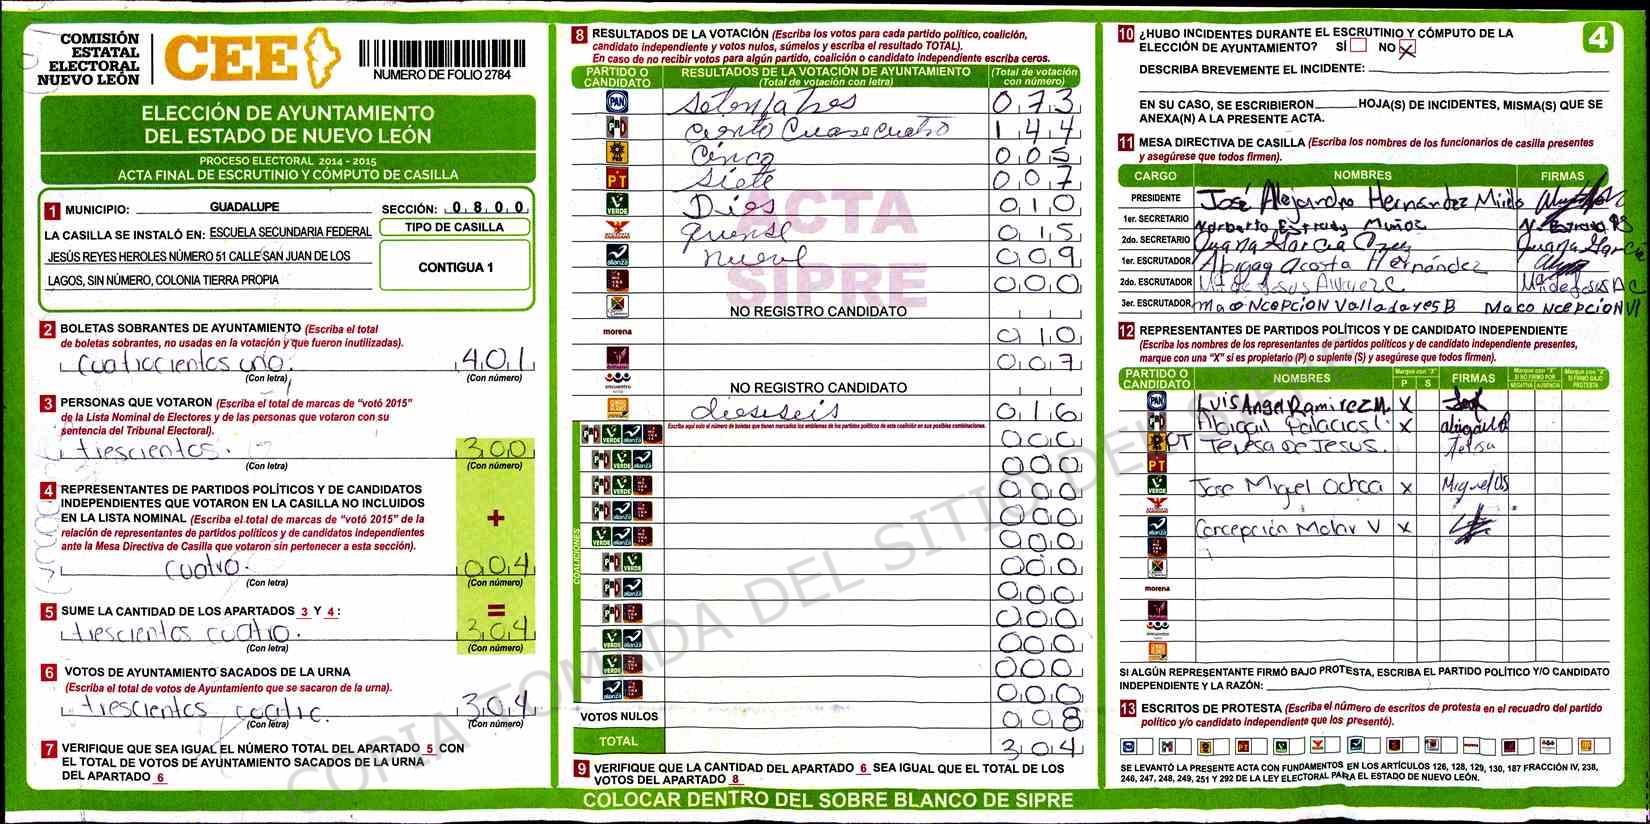 COMISIÓN
ESTATAL
ELECTORAL
NUEVO LEÓN
CEE
NUMERO DE FOLIO 2784
ELECCIÓN DE AYUNTAMIENTO
DEL ESTADO DE NUEVO LEÓN
PROCESO ELECTORAL 2014 - 2015
ACTA FINAL DE ESCRUTINIO Y CÓMPUTO DE CASILLA
1 MUNICIPIO: GUADALUPE SECCIÓN: 0 8 0 0
LA CASILLA SE INSTALÓ EN: ESCUELA SECUNDARIA FEDERAL
JESÚS REYES HEROLES NÚMERO 51 CALLE SAN JUAN DE LOS
LAGOS, SIN NÚMERO, COLONIA TIERRA PROPIA
TIPO DE CASILLA
CONTIGUA 1
2 BOLETAS SOBRANTES DE AYUNTAMIENTO (Escriba el total
de boletas sobrantes, no usadas en la votación y que fueron inutilizadas).
Cuatrocientos uno. 4 0 1
(Con letra) (Con número)
3 PERSONAS QUE VOTARON (Escriba el total de marcas de "votó 2015"
de la Lista Nominal de Electores y de las personas que votaron con su
sentencia del Tribunal Electoral).
trescientos. 3 0 0
(Con letra) (Con número)
4 REPRESENTANTES DE PARTIDOS POLÍTICOS Y DE CANDIDATOS
INDEPENDIENTES QUE VOTARON EN LA CASILLA NO INCLUIDOS
EN LA LISTA NOMINAL (Escriba el total de marcas de "votó 2015" de la
relación de representantes de partidos políticos y de candidatos independientes
ante la Mesa Directiva de Casilla que votaron sin pertenecer a esta sección).
+
cuatro. 0 0 4
(Con letra) (Con número)
=
5 SUME LA CANTIDAD DE LOS APARTADOS 3 Y 4:
trescientos cuatro. 3 0 4
(Con letra) (Con número)
6 VOTOS DE AYUNTAMIENTO SACADOS DE LA URNA
(Escriba el total de votos de Ayuntamiento que se sacaron de la urna).
trescientos cuatro. 3 0 4
(Con letra) (Con número)
7 VERIFIQUE QUE SEA IGUAL EL NÚMERO TOTAL DEL APARTADO 5 CON
EL TOTAL DE VOTOS DE AYUNTAMIENTO SACADOS DE LA URNA
DEL APARTADO 6
8 RESULTADOS DE LA VOTACIÓN (Escriba los votos para cada partido político, coalición,
candidato independiente y votos nulos, súmelos y escriba el resultado TOTAL).
En caso de no recibir votos para algún partido, coalición o candidato independiente escriba ceros.
PARTIDO O CANDIDATO
RESULTADOS DE LA VOTACIÓN DE AYUNTAMIENTO
(Total de votación con letra)
(Total de votación con número)
PAN Setentaitres 0 7 3
PRD Ciento Cuarecuatro 1 4 4
Cinco 0 0 5
PT Siete 0 0 7
VERDE Dies 0 1 0
quense 0 1 5
alianza nueve 0 0 9
0 0 0
NO REGISTRO CANDIDATO
morena 0 1 0
0 0 7
encuentro NO REGISTRO CANDIDATO
dieseseis 0 1 6
Escriba aquí solo el número de boletas que tienen marcados los emblemas de los partidos políticos de esta coalición en sus posibles combinaciones.
COALICIONES
0 0 0
0 0 0
0 0 0
0 0 0
0 0 0
0 0 0
0 0 0
0 0 0
0 0 0
0 0 0
0 0 0
VOTOS NULOS 0 0 8
TOTAL 3 0 4
9 VERIFIQUE QUE LA CANTIDAD DEL APARTADO 6 SEA IGUAL QUE EL TOTAL DE LOS
VOTOS DEL APARTADO 8
COLOCAR DENTRO DEL SOBRE BLANCO DE SIPRE
ACTA
SIPRE
COPIA TOMADA DEL SITIO DEL SIPRE
4
10 ¿HUBO INCIDENTES DURANTE EL ESCRUTINIO Y CÓMPUTO DE LA
ELECCIÓN DE AYUNTAMIENTO? SÍ NO X
DESCRIBA BREVEMENTE EL INCIDENTE:
EN SU CASO, SE ESCRIBIERON HOJA(S) DE INCIDENTES, MISMA(S) QUE SE
ANEXA(N) A LA PRESENTE ACTA.
11 MESA DIRECTIVA DE CASILLA (Escriba los nombres de los funcionarios de casilla presentes
y asegúrese que todos firmen).
CARGO NOMBRES FIRMAS
PRESIDENTE José Alejandro Hernández
1er. SECRETARIO Norberto Estrada Muñoz
2do. SECRETARIO Juana Garcia Cruz Juana Garcia
1er. ESCRUTADOR Abigag Acosta Hernández
2do. ESCRUTADOR Ma de Jesus C
3er. ESCRUTADOR Ma Concepcion Valladares B Ma Concepcion V
12 REPRESENTANTES DE PARTIDOS POLÍTICOS Y DE CANDIDATO INDEPENDIENTE
(Escriba los nombres de los representantes de partidos políticos y de candidato independiente presentes,
marque con una "X" si es propietario (P) o suplente (S) y asegúrese que todos firmen).
PARTIDO O CANDIDATO NOMBRES Marque con "X" P S FIRMAS Marque con "X" SI NO FIRMÓ POR NEGATIVA AUSENCIA Marque con "X" SI FIRMÓ BAJO PROTESTA
PAN Luis Angel Ramirez M. X
Abigail Palacios X
PT Teresa de Jesus.
PT
VERDE Jose Miguel Ochoa X
alianza Concepción V X
morena
encuentro
SI ALGÚN REPRESENTANTE FIRMÓ BAJO PROTESTA, ESCRIBA EL PARTIDO POLÍTICO Y/O CANDIDATO
INDEPENDIENTE Y LA RAZÓN:
13 ESCRITOS DE PROTESTA (Escriba el número de escritos de protesta en el recuadro del partido
político y/o candidato independiente que los presentó).
SE LEVANTÓ LA PRESENTE ACTA CON FUNDAMENTOS EN LOS ARTÍCULOS 126, 128, 129, 130, 187 FRACCIÓN IV, 238,
246, 247, 248, 249, 251 Y 292 DE LA LEY ELECTORAL PARA EL ESTADO DE NUEVO LEÓN.